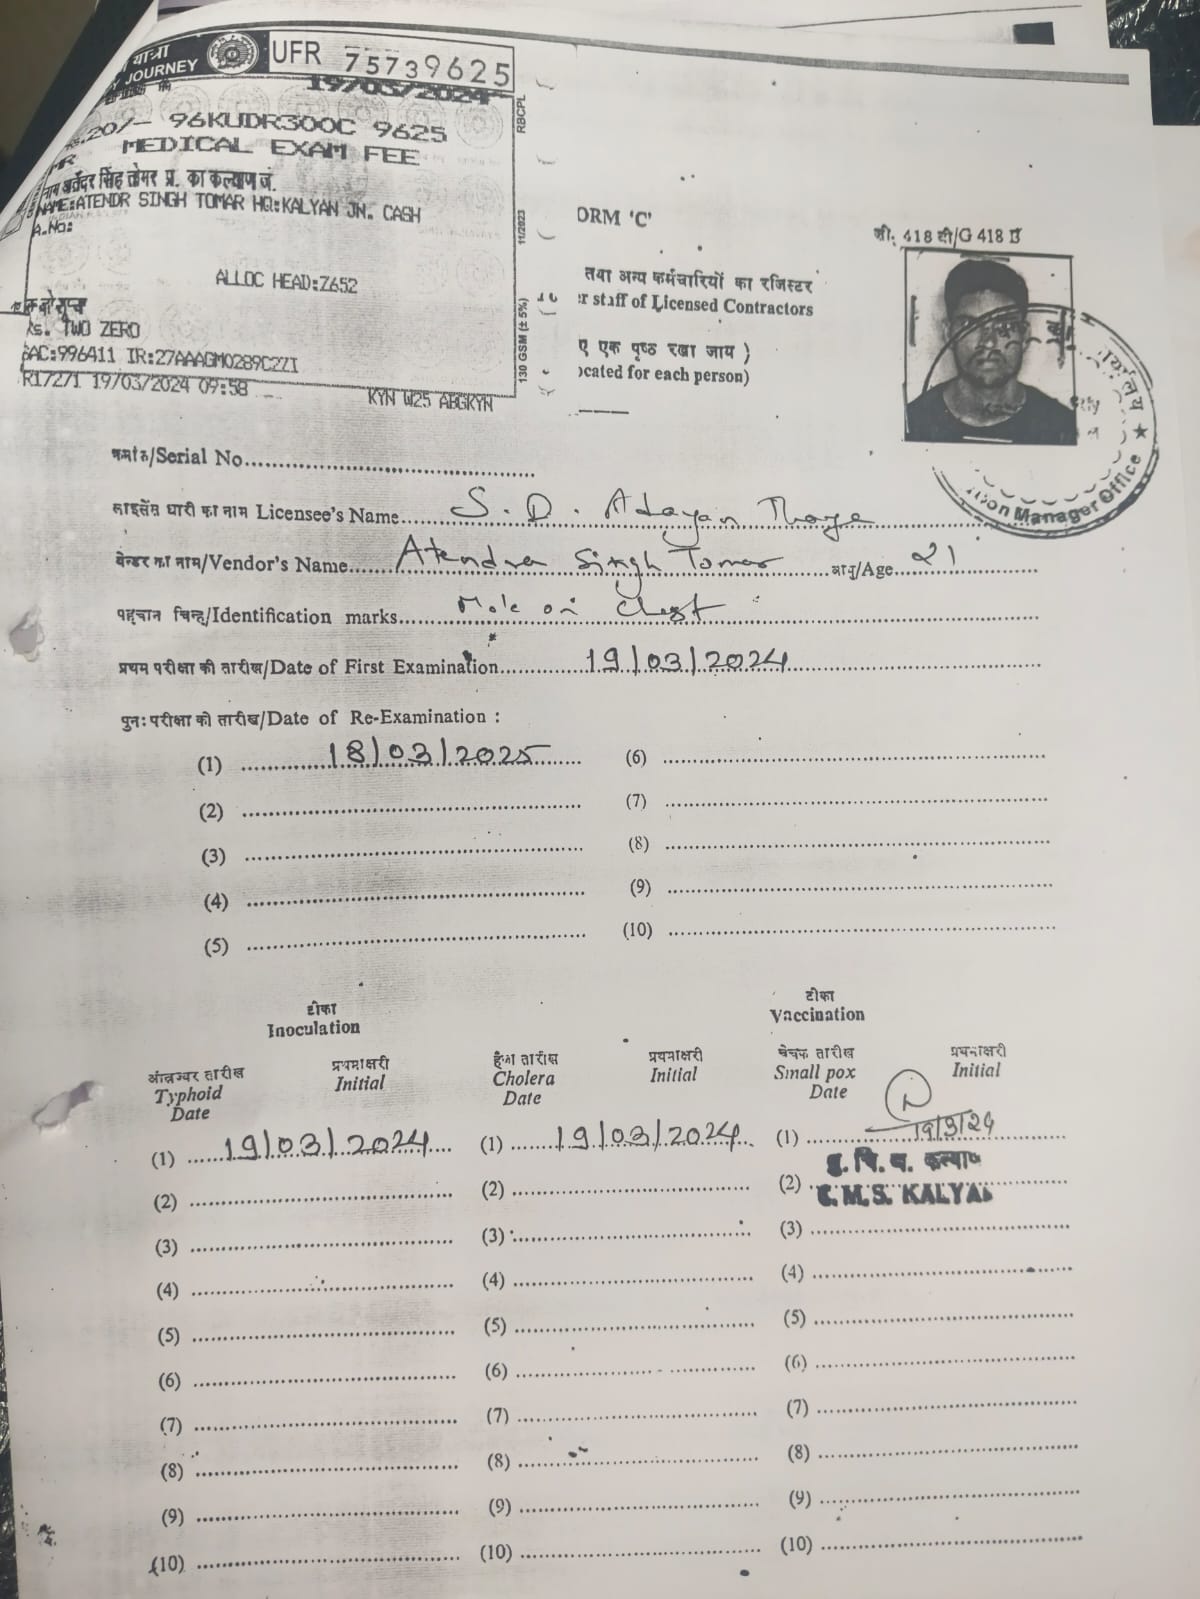 यात्रा
JOURNEY
UFR 75739625
19/03/2024
20/- 96KUDR300C 9625
MEDICAL EXAM FEE
सिंह तोमर प्र. का कल्याण जं.
NAME:ATENDR SINGH TOMAR HQ:KALYAN JN. CASH
A.No:
ALLOC HEAD:Z652
Rs. TWO ZERO
SAC:996411 IR:27AAAGM0289C2ZI
R17271 19/03/2024 09:58
KYN W25 ABGKYN
RBCPL
11/2023
130 GSM (± 5%)
ORM 'C'
जी. 418 बी/G 418 B
तथा अन्य कर्मचारियों का रजिस्टर
r staff of Licensed Contractors
ए एक पृष्ठ रखा जाय )
ocated for each person)
Manager Office
क्रमांक/Serial No.
लाइसेंस धारी का नाम Licensee's Name S. D. Thorge
वेन्डर का नाम/Vendor's Name Atendra Singh Tomar आयु/Age 21
पहचान चिन्ह/Identification marks Mole on chest
प्रथम परीक्षा की तारीख/Date of First Examination 19/03/2024
पुनः परीक्षा की तारीख/Date of Re-Examination :
(1) 18/03/2025 (6)
(2) (7)
(3) (8)
(4) (9)
(5) (10)
टीका टीका
Inoculation Vaccination
आंत्रज्वर तारीख प्रथमाक्षरी हैजा तारीख प्रथमाक्षरी चेचक तारीख प्रथमाक्षरी
Typhoid Initial Cholera Initial Small pox Initial
Date Date Date
(1) 19/03/2024 (1) 19/03/2024 (1) 19/3/24
मु. चि. अ. कल्याण
(2) (2) (2) C.M.S. KALYAN
(3) (3) (3)
(4) (4) (4)
(5) (5) (5)
(6) (6) (6)
(7) (7) (7)
(8) (8) (8)
(9) (9) (9)
(10) (10) (10)